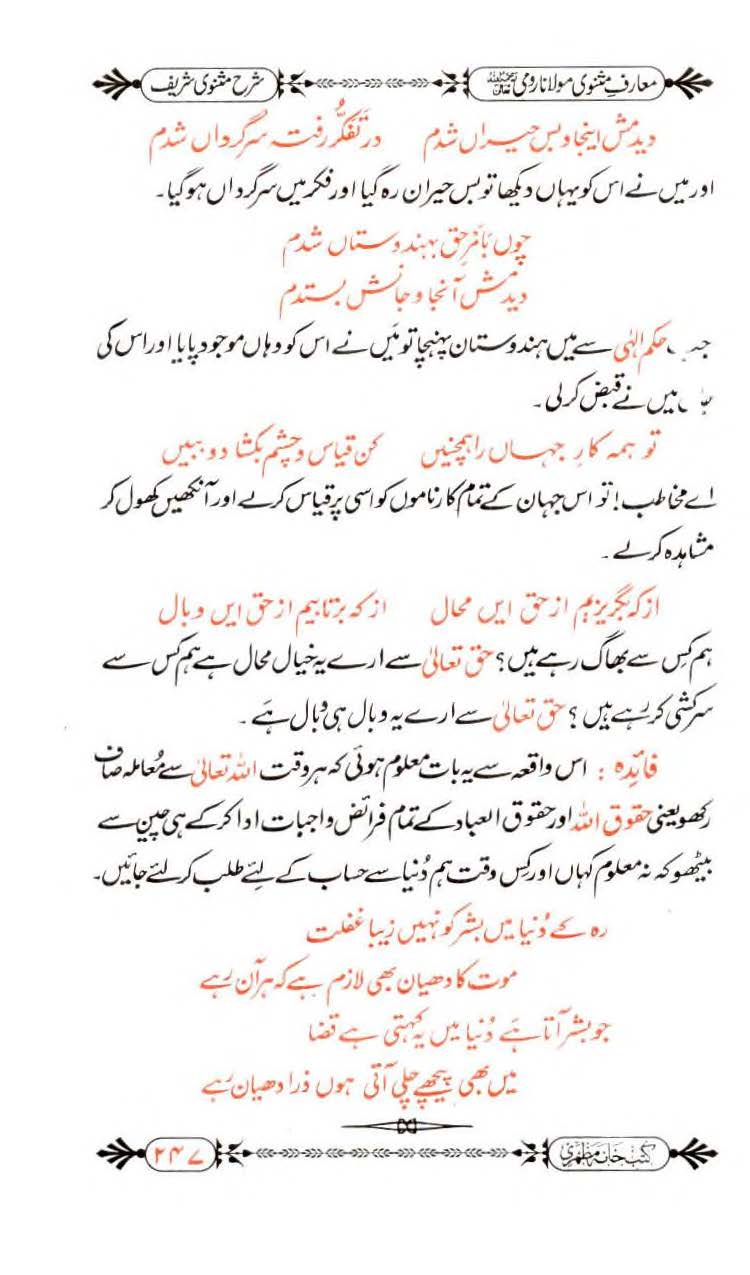 معارفِ مثنوی مولانا رومی رحمۃاللہ علیہ شرح مثنوی شریف
دیدمش اینجا و بس حیراں شدم در تَفَکُّر رفتہ سرگرداں شدم
اور میں نے اس کو یہاں دیکھا تو بس حیران رہ گیا اور فکر میں سرگرداں ہو گیا۔
چوں بَامْرِ حق بہندوستاں شدم
دیدمش آنجا و جانش بستدم
حکمِ الٰہی سے میں ہندوستان پہنچا تو میَں نے اس کو وہاں موجود پایا اور اس کی
میں نے قبض کر لی۔
تو ہمہ کارِ جہاں را ہمچنیں کن قیاس و چشم بکشا و ببیں
اے مخاطب! تو اس جہان کے تمام کارناموں کو اسی پر قیاس کر لے اور آنکھیں کھول کر
مشاہدہ کر لے۔
از کہ بگریزیم از حق ایں محال از کہ برتابیم از حق ایں وبال
ہم کِس سے بھاگ رہے ہیں؟ حق تعالیٰ سے ارے یہ خیال محال ہے ہم کس سے
سرکشی کر رہے ہیں؟ حق تعالیٰ سے ارے یہ وبال ہی وَبال ہَے۔
فائدہ : اس واقعہ سے یہ بات معلوم ہوئی کہ ہر وقت اللہ تعالیٰ سے مُعاملہ صاف
رکھو یعنی حقوق اللہ اور حقوق العباد کے تمام فرائض واجبات ادا کر کے ہی چین سے
بیٹھو کہ نہ معلوم کہاں اور کِس وقت ہم دُنیا سے حساب کے لئے طلب کر لئے جائیں۔
رہ کے دُنیا میں بشر کو نہیں زیبا غفلت
موت کا دھیان بھی لازم ہے کہ ہر آن رہے
جو بشر آتا ہَے دُنیا میں یہ کہتی ہے قضا
میں بھی پیچھے چلی آتی ہوں ذرا دھیان رہے
کتب خانہ مظہری ۲۴۷